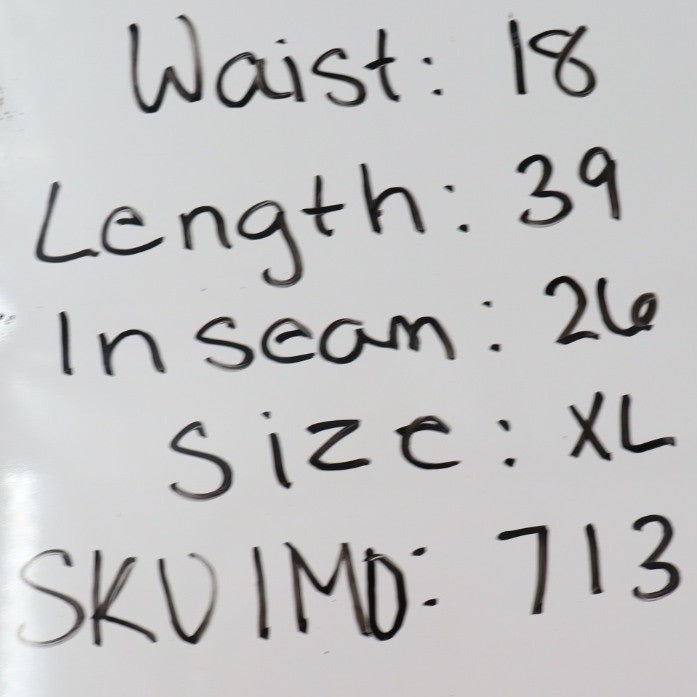 Waist: 18
Length: 39
Inseam: 26
Size: XL
SKU IMD: 713